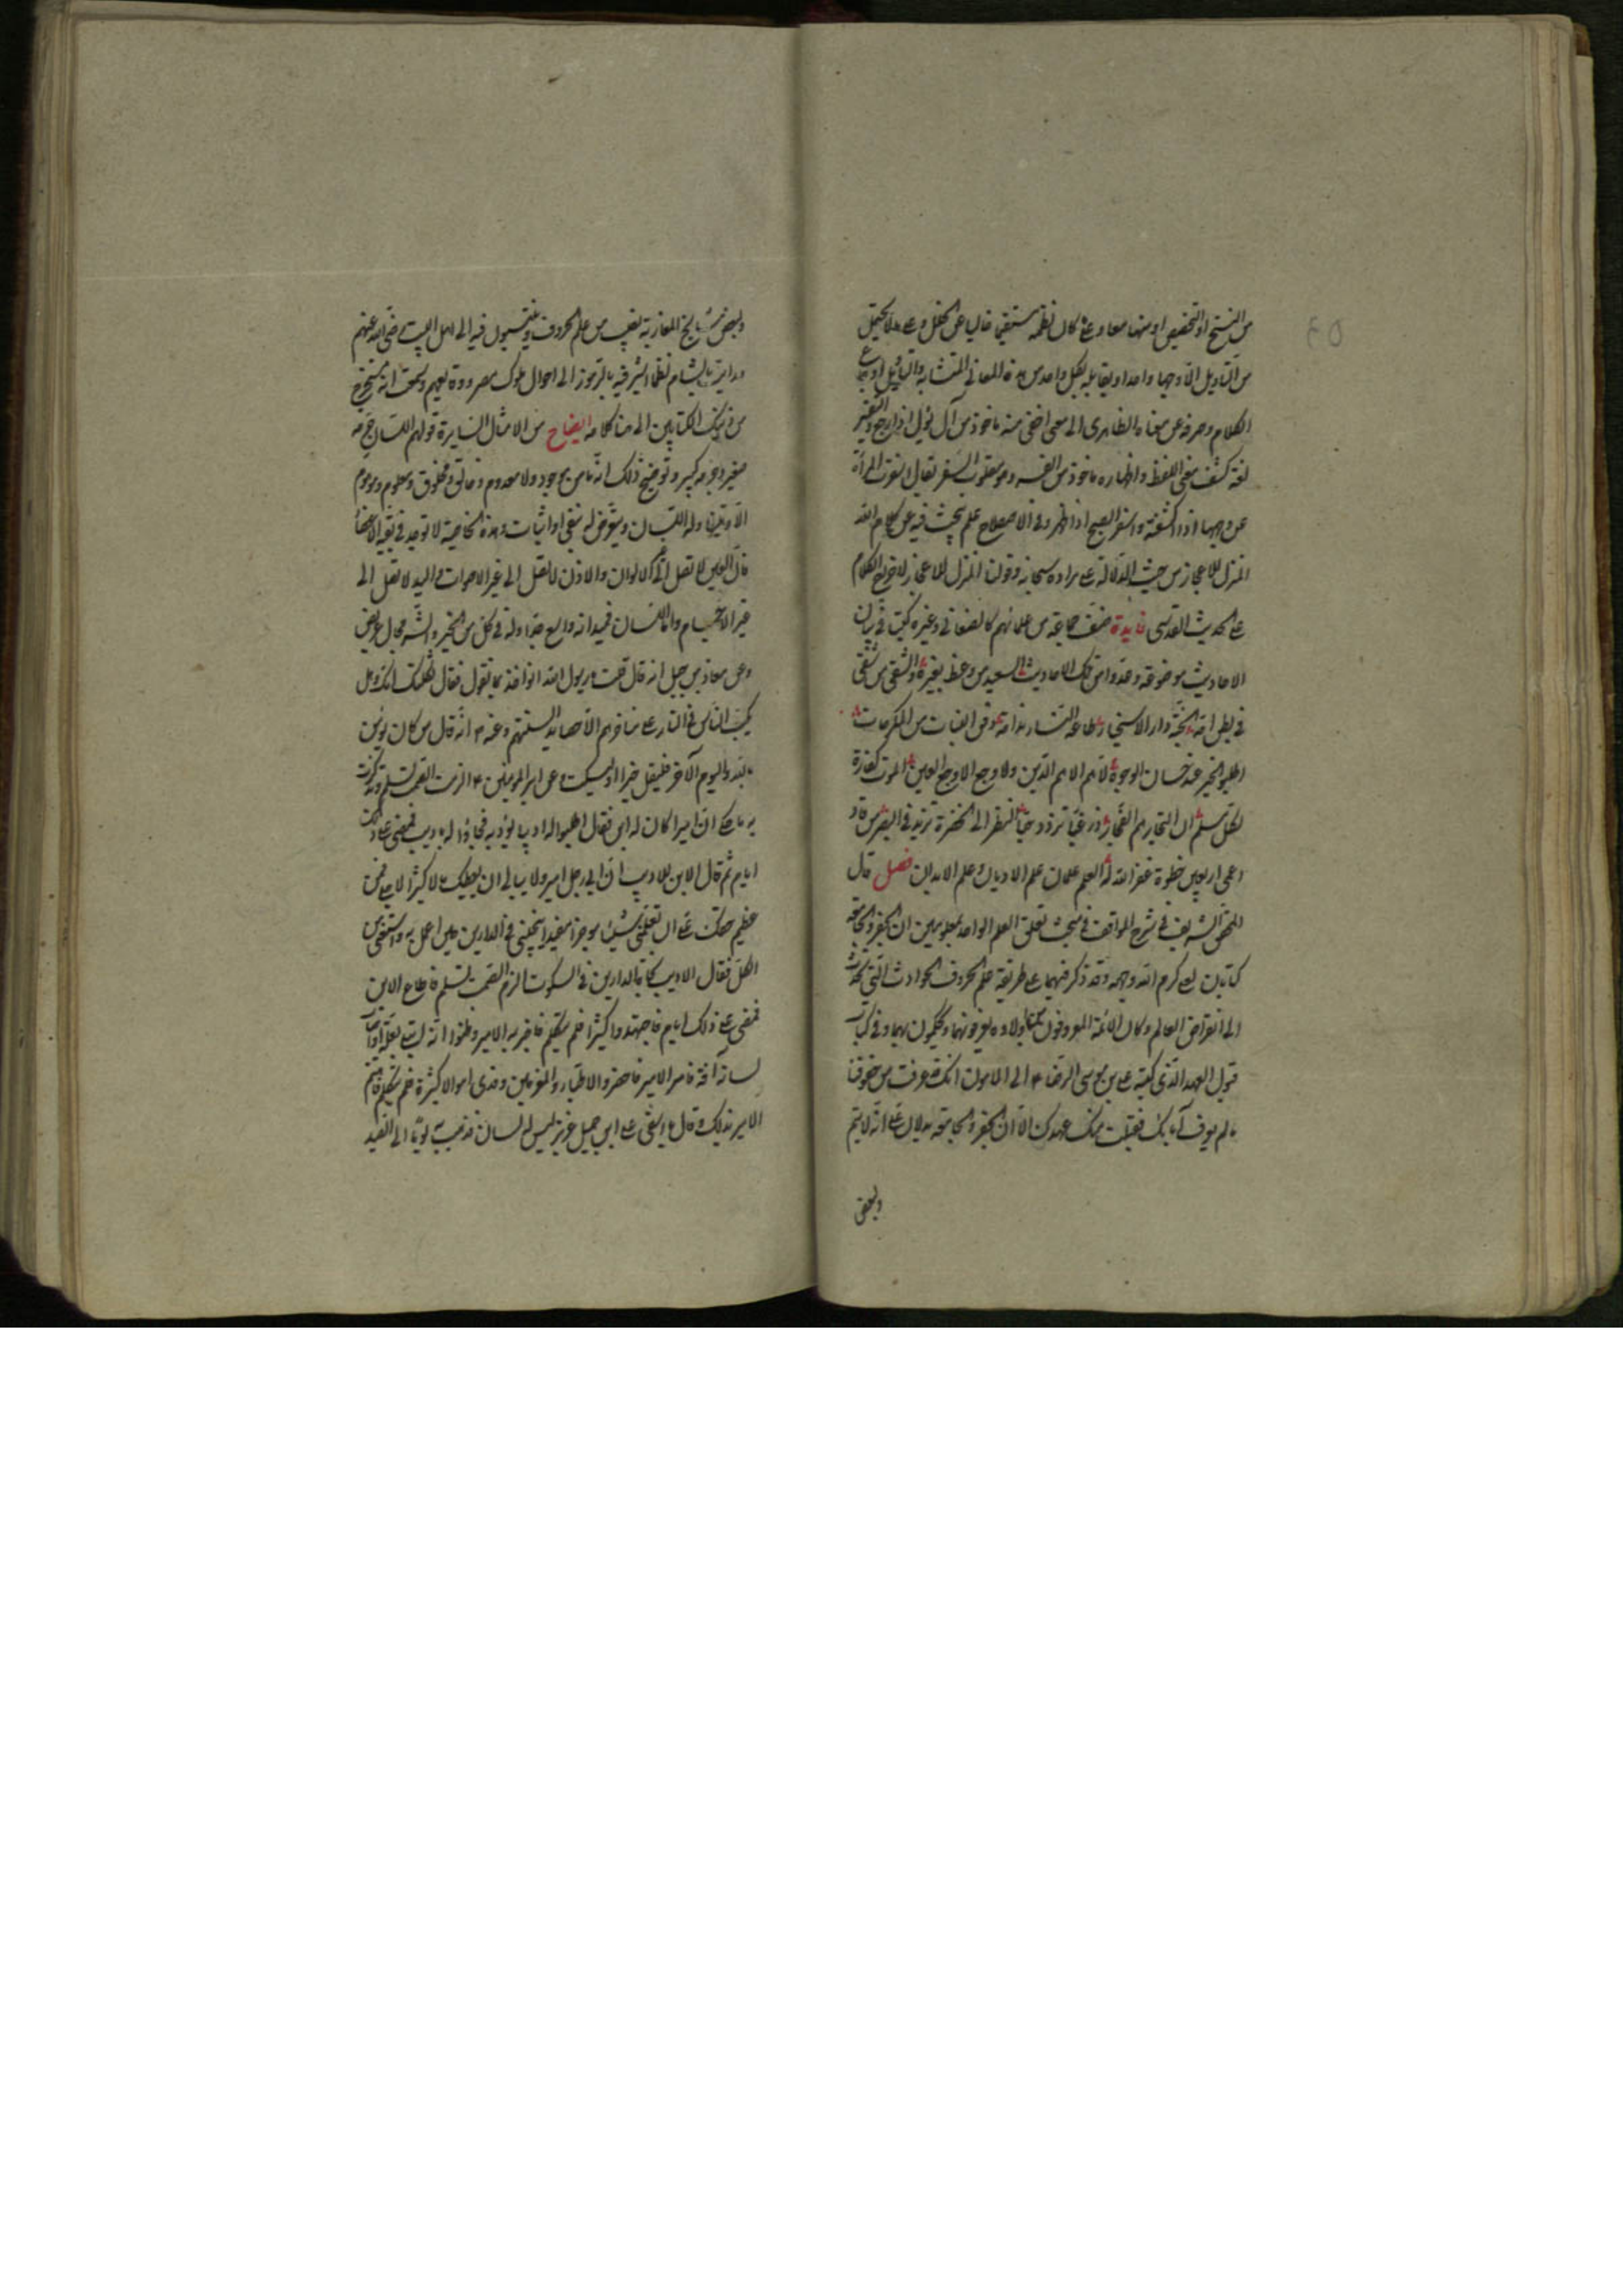 من النسخ او التخصيص او منهما معا وعلى ما كان نظمه مستقيما خاليا عن الخلل وعلى ما لا يحتمل
من التاويل الا وجها واحدا ويقابله بكل واحد من هذه المعانى المتشابه والتاويل ارجاع
الكلام وصرفه عن معناه الظاهرى الى معنى اخفى منه ماخوذ من آل يؤل اذا رجع والتفسير
لغة كشف معنى اللفظ واظهاره ماخوذ من الفسر وهو مقلوب السفر يقال اسفرت المرأة
عن وجهها اذا كشفته واسفر الصبح اذا ظهر وفى الاصطلاح علم يبحث فيه عن كلام الله
المنزل للاعجاز من حيث الدلالة على مراده سبحانه وقولنا المنزل للاعجاز لاخراج الكلام
على الحديث القدسى فايدة صنف جماعة من علمائهم كالصغانى وغيره كتبا فى بيان
الاحاديث موضوعة وعدوا من تلك الاحاديث السعيد من وعظ بغيره والشقى من شقى
فى بطن امه الجنة دار الاسخياء طاعة النساء ندامة دفن البنات من المكرمات
اطلبوا الخير عند حسان الوجوه لا هم الا هم الدين ولا وجع الا وجع العين الموت كفارة
لكل مسلم ان التجار هم الفجار زر غبا تزدد حبا النظر الى الخضرة تزيد فى البصر من قاد
اعمى اربعين خطوة غفر الله له العلم علمان علم الاديان وعلم الابدان فصل قال
المحقق الشريف فى شرح المواقف فى مبحث تعلق العلم الواحد بمعلومين ان الجفر والجامعة
كتابان لعلى كرم الله وجهه وقد ذكر فيهما على طريقة علم الحروف الحوادث التى تحدث
الى انقراض العالم وكان الائمة المعروفون من اولاده يعرفونهما ويحكمون بهما وفى كتاب
قبول العهد الذى كتبه على بن موسى الرضا ع الى المامون انك قد عرفت من حقوقنا
ما لم يعرف آباؤك فقبلت منك عهدك الا ان الجفر والجامعة يدلان على انه لا يتم
وبعض
ولبعض مشايخ المغاربة نصيب من علم الحروف وينتسبون فيه الى اهل البيت رضى الله عنهم
ورايت بالشام نظما اشير فيه بالرموز الى احوال ملوك مصر وسمعت انه مستخرج
من ذينك الكتابين الى هنا كلامه ايضاح من الامثال السايرة قولهم اللسان جرمه
صغير وجرمه كبير وتوضيح ذلك انه ما من موجود ولا معدوم وخالق ومخلوق ومعلوم وموهوم
الا ويتناوله اللسان ويتعرض له بنفى او اثبات وهذه الخاصية لا توجد فى بقية الاعضاء
فان العين لا تصل الى غير الالوان والاذن لا تصل الى غير الاصوات واليد لا تصل الى
غير الاجسام واما اللسان فميدانه واسع جدا وله فى كل من الخير والشر مجال عريض
وعن معاذ بن جبل انه قال قلت يا رسول الله انؤاخذ بما نقول فقال ثكلتك امك وهل
يكب الناس فى النار على مناخرهم الا حصايد السنتهم وعنه ص انه قال من كان يؤمن
بالله واليوم الآخر فليقل خيرا او ليسكت وعن امير المومنين ع الزم الصمت تسلم وتذكرت
به ما حكى ان اميرا كان له ابن فقال اطلبوا له اديبا يؤدبه فجاؤا له باديب فمضى على ذلك
ايام ثم قال الابن للاديب ان ابى رجل امير ولا يبالى ان يعطيك مالا كثيرا لا
عظيم حقك على ان تعلمنى شيئا موجزا مفيدا ينجينى فى الدارين حين اعمل به واستغنى عن
الكل فقال الاديب نجاة الدارين فى السكوت الزم الصمت تسلم فاطاع الابن
فمضى على ذلك ايام فاجتهدوا كثيرا فلم يتكلم فاخبر به الامير وظنوا انه ابتلى بعلة واصاب
لسانه آفة فامر الامير فاحضروا الاطباء والمعزمين وفدى اموالا كثيرة فلم يتكلم فاهتم
الامير بذلك وقال يا اسفى على ابن جميل عزيز ليس له لسان فذهب به يوما الى الصيد